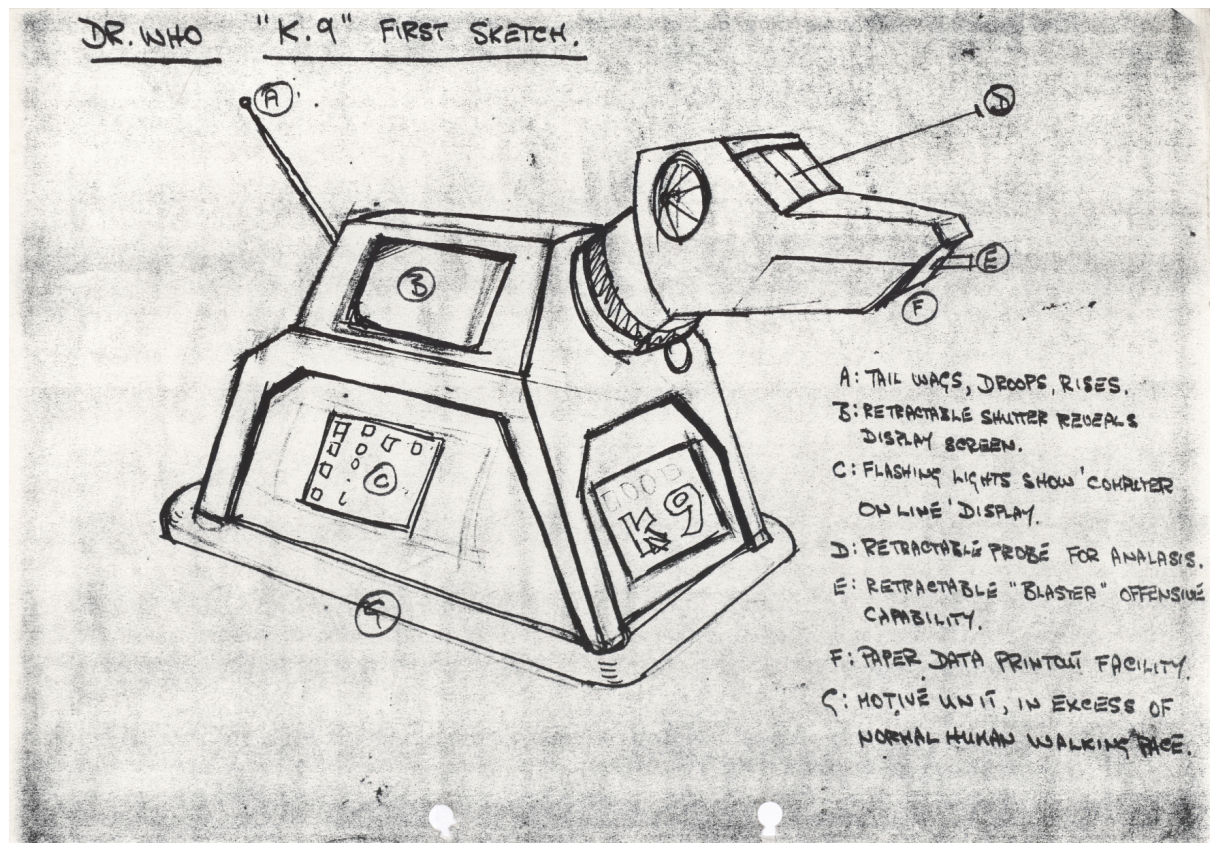 DR. WHO "K.9" FIRST SKETCH.
A
D
B
E
F
C
K9
G
A: TAIL WAGS, DROOPS, RISES.
B: RETRACTABLE SHUTTER REVEALS
DISPLAY SCREEN.
C: FLASHING LIGHTS SHOW 'COMPUTER
ON LINE' DISPLAY.
D: RETRACTABLE PROBE FOR ANALASIS.
E: RETRACTABLE "BLASTER" OFFENSIVE
CAPABILITY.
F: PAPER DATA PRINTOUT FACILITY.
G: MOTIVE UNIT, IN EXCESS OF
NORMAL HUMAN WALKING PACE.